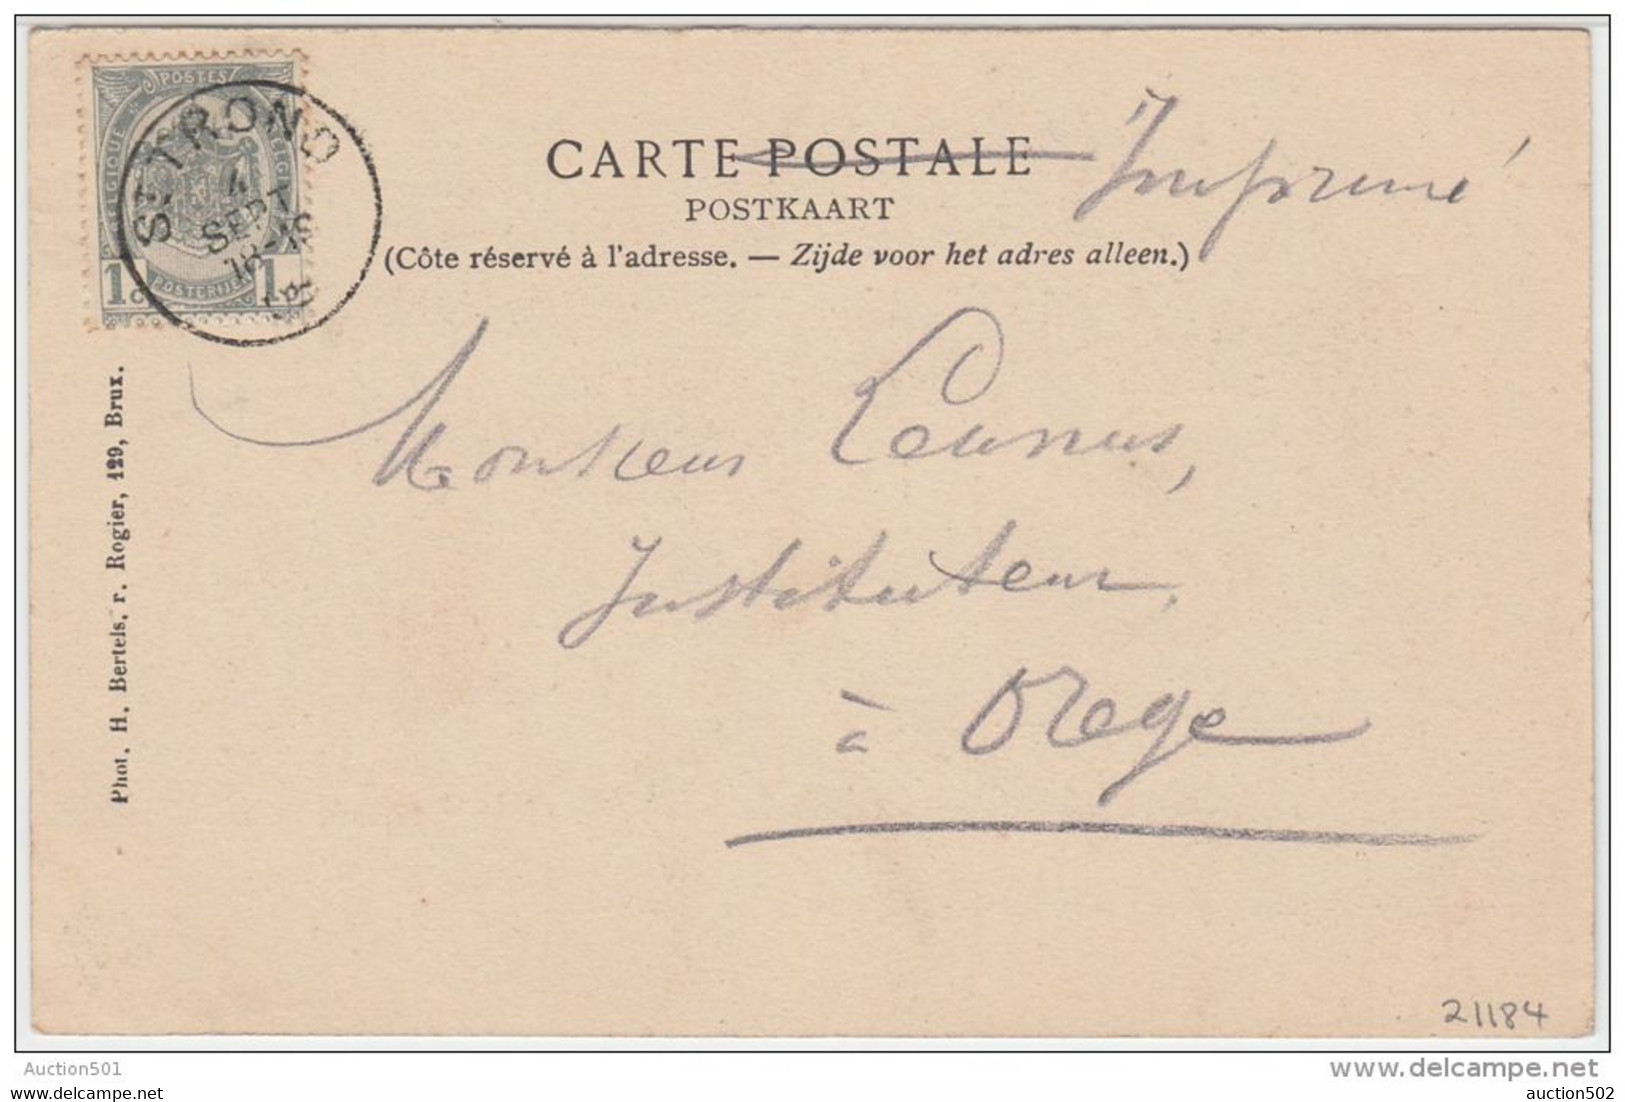 POSTES
BELGIQUE
BELGIE
ST. TROND
4
SEPT
POSTERIJEN
1c 1c
CARTE POSTALE
Imprimé
POSTKAART
(Côte réservé à l'adresse. — Zijde voor het adres alleen.)
Phot. H. Bertels, r. Rogier, 129, Brux.
Monsieur
Instituteur,
à Orege
21184
Auction501
www.delcampe.net
auction501
auction502